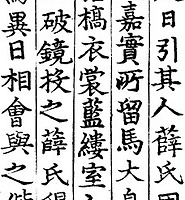 日引其人薛氏
嘉實所留馬大
槁衣裳藍縷室
破鏡投之薛氏得
異日相會與之偕